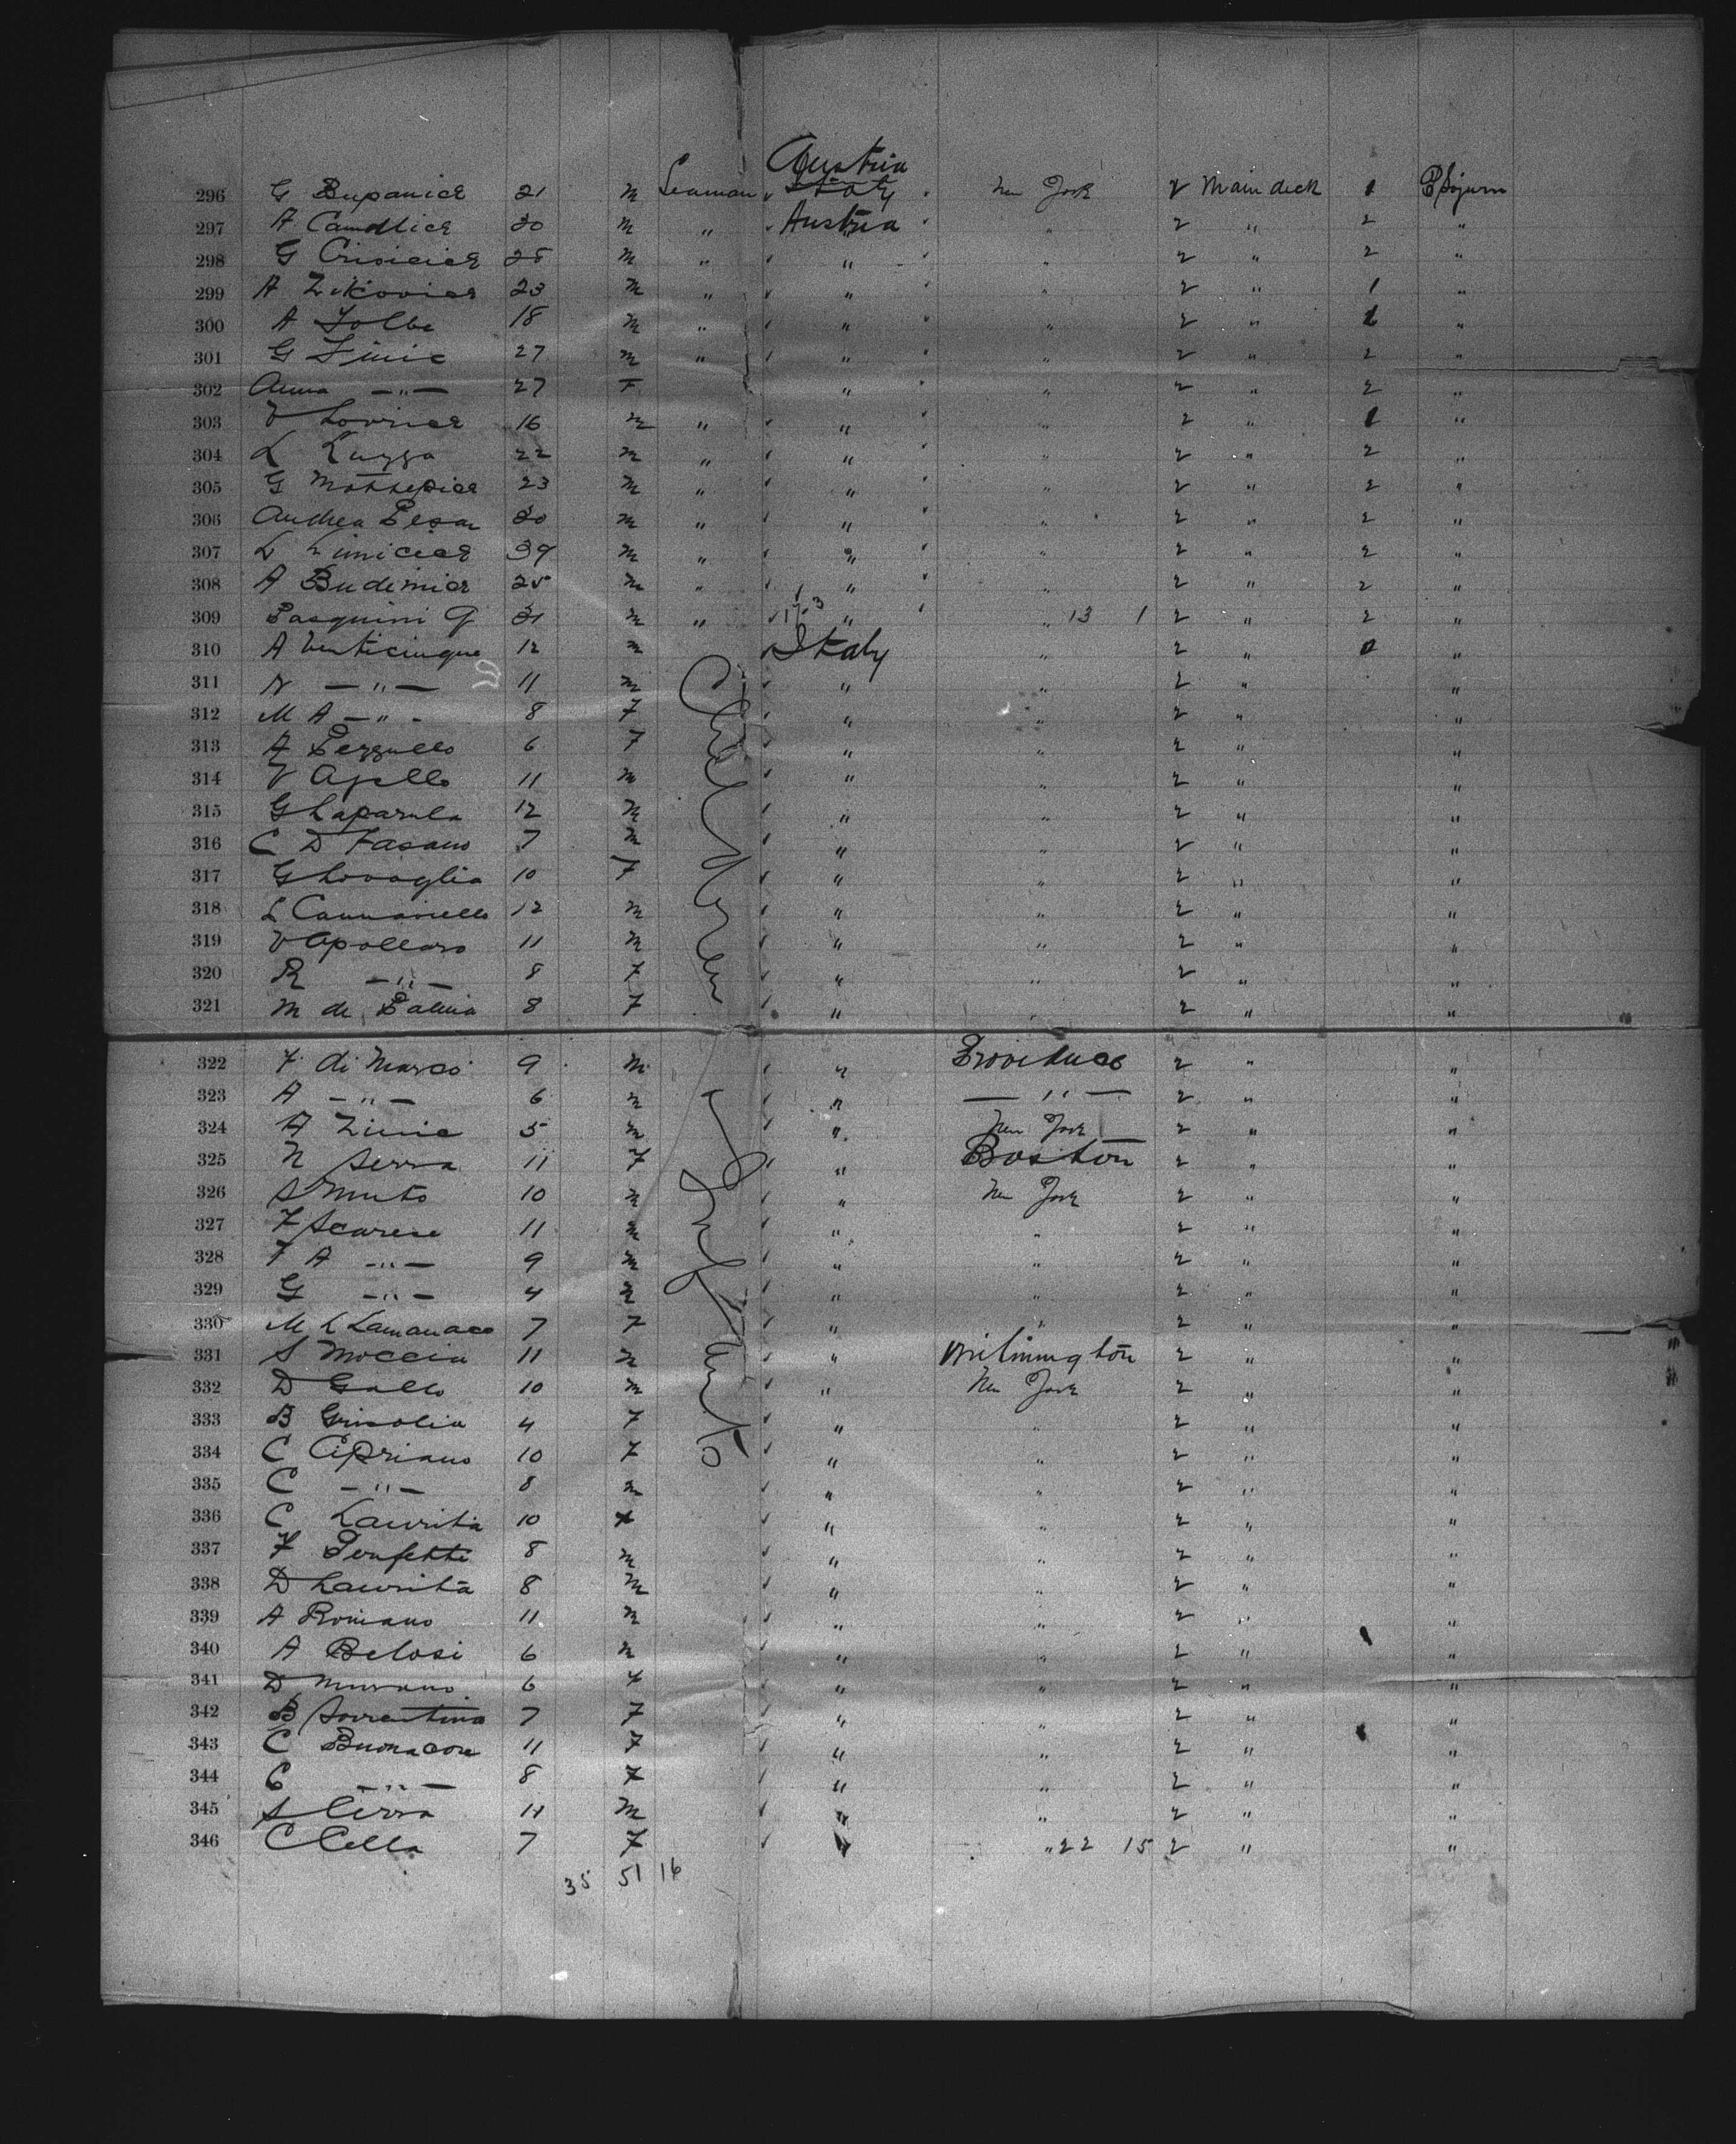 Austria
296 G Bupanich 21 M Seaman Italy New York 2 Main deck 1 P Sojurn
297 A 20 M " Austria " 2 " 2 "
298 G 25 M " " " 2 " 2 "
299 A 23 M " " " 2 " 1 "
300 A 18 M " " " 2 " 1 "
301 G 27 M " " " 2 " 2 "
302 Anna —"— 27 F " " 2 " 2 "
303 V Lovrich 16 M " " " 2 " 1 "
304 L 22 M " " " 2 " 2 "
305 G 23 M " " " 2 " 2 "
306 Andrea Pesa 30 M " " " 2 " 2 "
307 L 39 M " " " 2 " 2 "
308 A Budimich 25 M " " " 2 " 2 "
309 Pasquini G 31 M " 17 3 " " 13 1 2 " 2 "
310 A Venticinque 12 M Italy " 2 " "
311 N —"— 11 M " " 2 " "
312 M A —"— 8 F " " 2 " "
313 A Pezzullo 6 F " " 2 " "
314 V Ajello 11 M " " 2 " "
315 G Laparula 12 M " " 2 " "
316 C D Fasano 7 M " " 2 " "
317 G Lovaglia 10 F " " 2 " "
318 L Cannariello 12 M " " 2 " "
319 V Apollaro 11 M " " 2 " "
320 R —"— 8 F " " 2 " "
321 M de Palma 8 F " " 2 " "
Children
322 F di Marco 9 M " Providence 2 " "
323 A —"— 6 M " —"— 2 " "
324 A Zinic 5 M " New York 2 " "
325 N Serra 11 F " Boston 2 " "
326 S Muto 10 M " New York 2 " "
327 F Scarese 11 M " " 2 " "
328 F A —"— 9 M " " 2 " "
329 G —"— 4 M " " 2 " "
330 M L Lamanaco 7 F " " 2 " "
331 S Moccia 11 M " Wilmington 2 " "
332 D Gallo 10 M " New York 2 " "
333 B Grisolia 4 F " " 2 " "
334 C Cipriano 10 F " " 2 " "
335 C —"— 8 M " " 2 " "
336 C Laurita 10 F " " 2 " "
337 F Perfetti 8 M " " 2 " "
338 D Laurita 8 M " " 2 " "
339 A Romano 11 M " " 2 " "
340 A Belosi 6 M " " 2 " "
341 D Murano 6 F " " 2 " "
342 B Sorrentino 7 F " " 2 " "
343 C Buonacore 11 F " " 2 " "
344 C —"— 8 F " " 2 " "
345 S Cerra 11 M " " 2 " "
346 C Cella 7 F " " 22 15 2 " "
& Infants
35 51 16